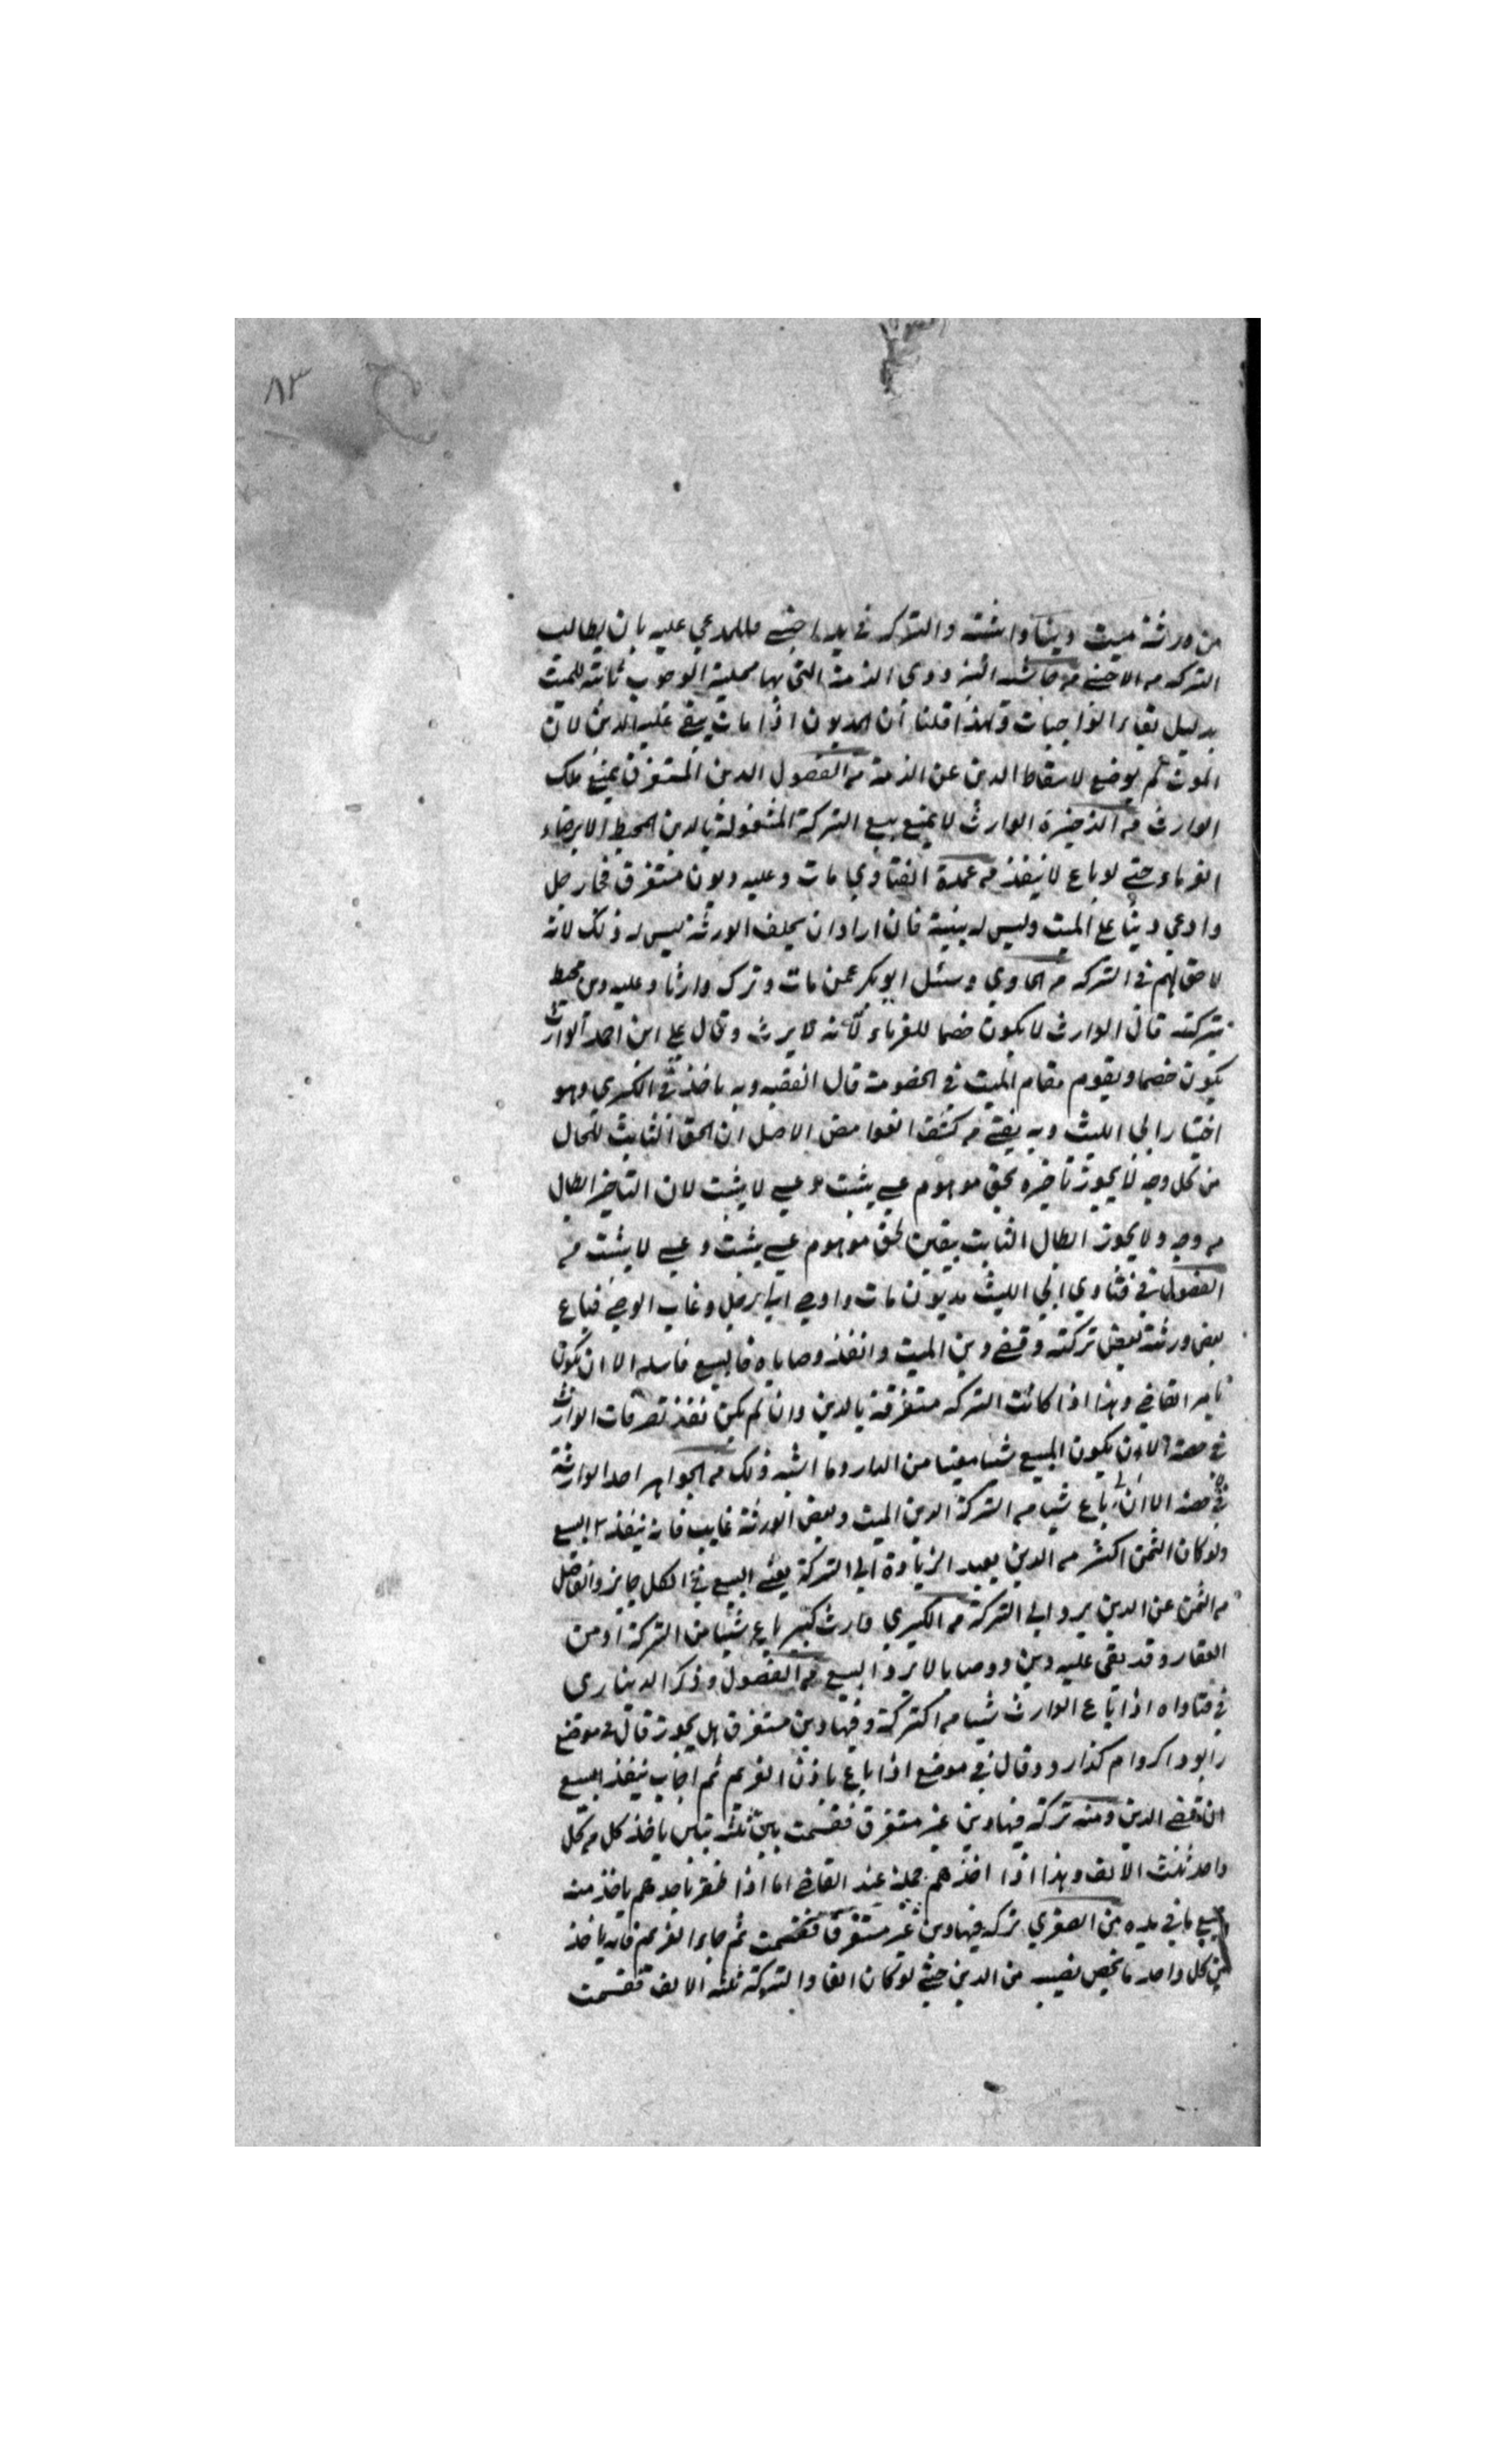 ٨٣
من ورثة ميت دينا واثبته والتركه في يد اجنبي فللمدعي عليه بان يطالب
التركه من الاجنبي من دوى الذمة التي بها محلية الوجوب ثابتة للميت
بدليل بقاء الواجبات ولهذا قلنا ان المديون اذا مات يبقى عليه الدين لان
الموت لم يوضع لاسقاط الدين عن الذمة من الفصول الدين المستغرق يمنع ملك
الوارث من الذخيرة الوارث لا يمنع بيع التركة المشغولة بالدين المحيط الا برضاء
الغرماء حتى لو باع لا ينفذ من عمدة الفتاوي مات وعليه ديون مستغرق فجا رجل
وادعي دينا على الميت وليس له بينة فان اراد ان يحلف الورثة ليس له ذلك لانه
لا حق لهم في التركه من الحاوي وسئل ابو بكر عمن مات وترك وارثا وعليه دين محيط
بتركته قال الوارث لا يكون خصما للغرماء لانه لا يرث وقال علي ابن احمد الوارث
يكون خصما ويقوم مقام الميت في الخصومة قال الفقيه وبه ناخذ في الكبري وهو
اختيار ابي الليث وبه يفتى من كشف الغوامض الاصل ان الحق الثابت للحال
من كل وجه لا يجوز تاخيره بحق موهوم عسى يثبت وعسى لا يثبت لان التاخير ابطال
من وجه ولا يجوز ابطال الثابت بيقين لحق موهوم عسى يثبت وعسى لا يثبت من
الفصول في فتاوي ابي الليث مديون مات واوصى الى رجل وغاب الوصي فباع
بعض ورثته بعض تركته وقضى دين الميت وانفذ وصاياه فالبيع فاسد الا ان يكون
بامر القاضي وهذا اذا كانت التركه مستغرقة بالدين وان لم يكن نفذ تصرفات الوارث
في حصته الا ان يكون المبيع شيا معينا من الدار وما اشبه ذلك من الجواهر احد الوارثة
في حصته الا ان باع شيا من التركة الدين الميت وبعض الورثة غايب فانه ينفذ البيع
ولو كان الثمن اكثر من الدين يعيد الزيادة الى التركة يعني البيع في الكل جايز والفاضل
من الثمن عن الدين يرد الى التركة من الكبري وارث كبير باع شيا من التركة او من
العقار وقد بقى عليه دين ووصايا لا يرد البيع من الفصول وذكر الديناري
في فتاواه اذا باع الوارث شيا من التركة وفيها دين مستغرق هل يجوز قال في موضع
را بود اكر وام كذارد وقال في موضع اذا باع باذن الغريم ثم اجاب ينفذ البيع
ان قضى الدين ومنه تركة فيها دين غير مستغرق فقسمت بين ثلثة بنين ياخذ كل من كل
واحد ثلث الالف وهذا اذا اخذهم جملة عند القاضي اما اذا ظفر باحدهم ياخذ منه
جميع ما في يده من الصغري تركه فيها دين غير مستغرق فقسمت ثم جاء الغريم فانه ياخذ
من كل واحد ما يخص نصيبه من الدين حتى لو كان الفا والتركة ثلثه الالف فقسمت